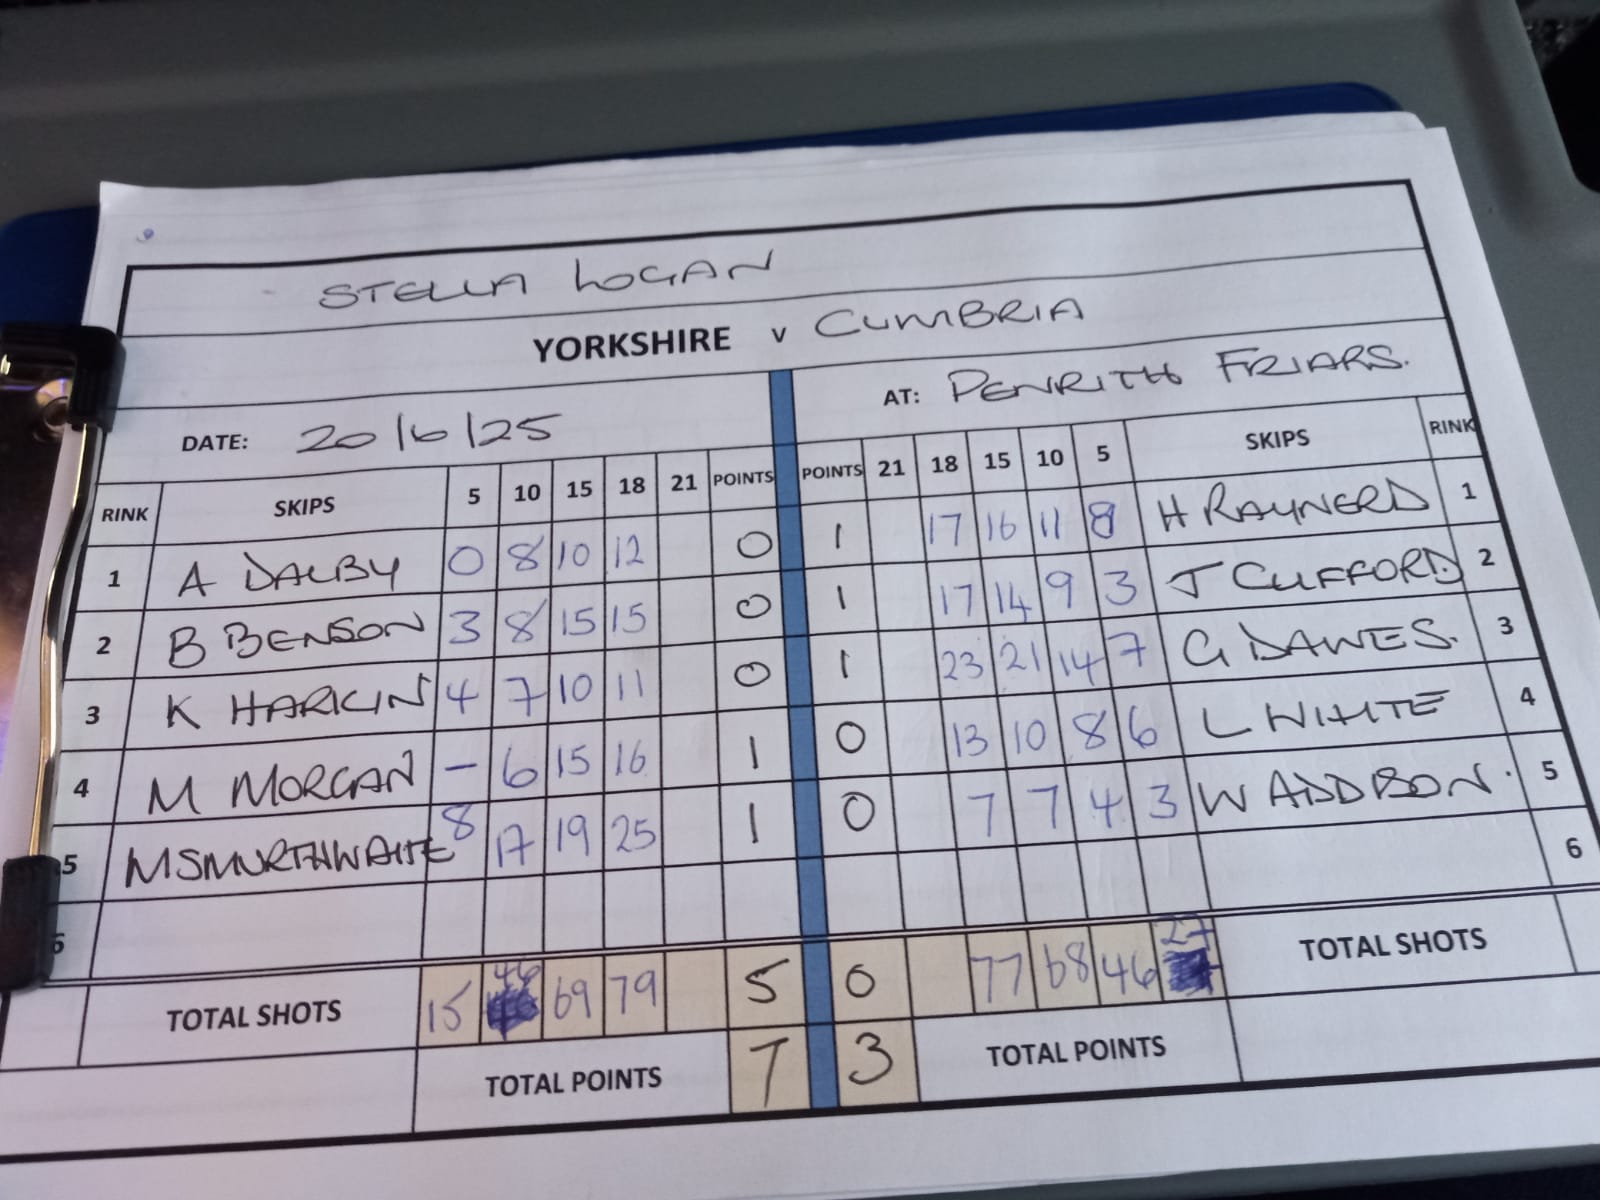 STELLA LOGAN
YORKSHIRE v CUMBRIA
DATE: 20/6/25 AT: PENRITH FRIARS.
RINK SKIPS 5 10 15 18 21 POINTS POINTS 21 18 15 10 5 SKIPS RINK
1 A DALBY 0 8 10 12 0 1 17 16 11 8 H RAYNERD 1
2 B BENSON 3 8 15 15 0 1 17 14 9 3 J CLIFFORD 2
3 K HARKIN 4 7 10 11 0 1 23 21 14 7 G DAWES. 3
4 M MORGAN - 6 15 16 1 0 13 10 8 6 L WHITE 4
5 M SMURTHWAITE 8 17 19 25 1 0 7 7 4 3 W ADDISON. 5
6 6
TOTAL SHOTS 15 46 69 79 5 0 77 68 46 27 TOTAL SHOTS
TOTAL POINTS 7 3 TOTAL POINTS